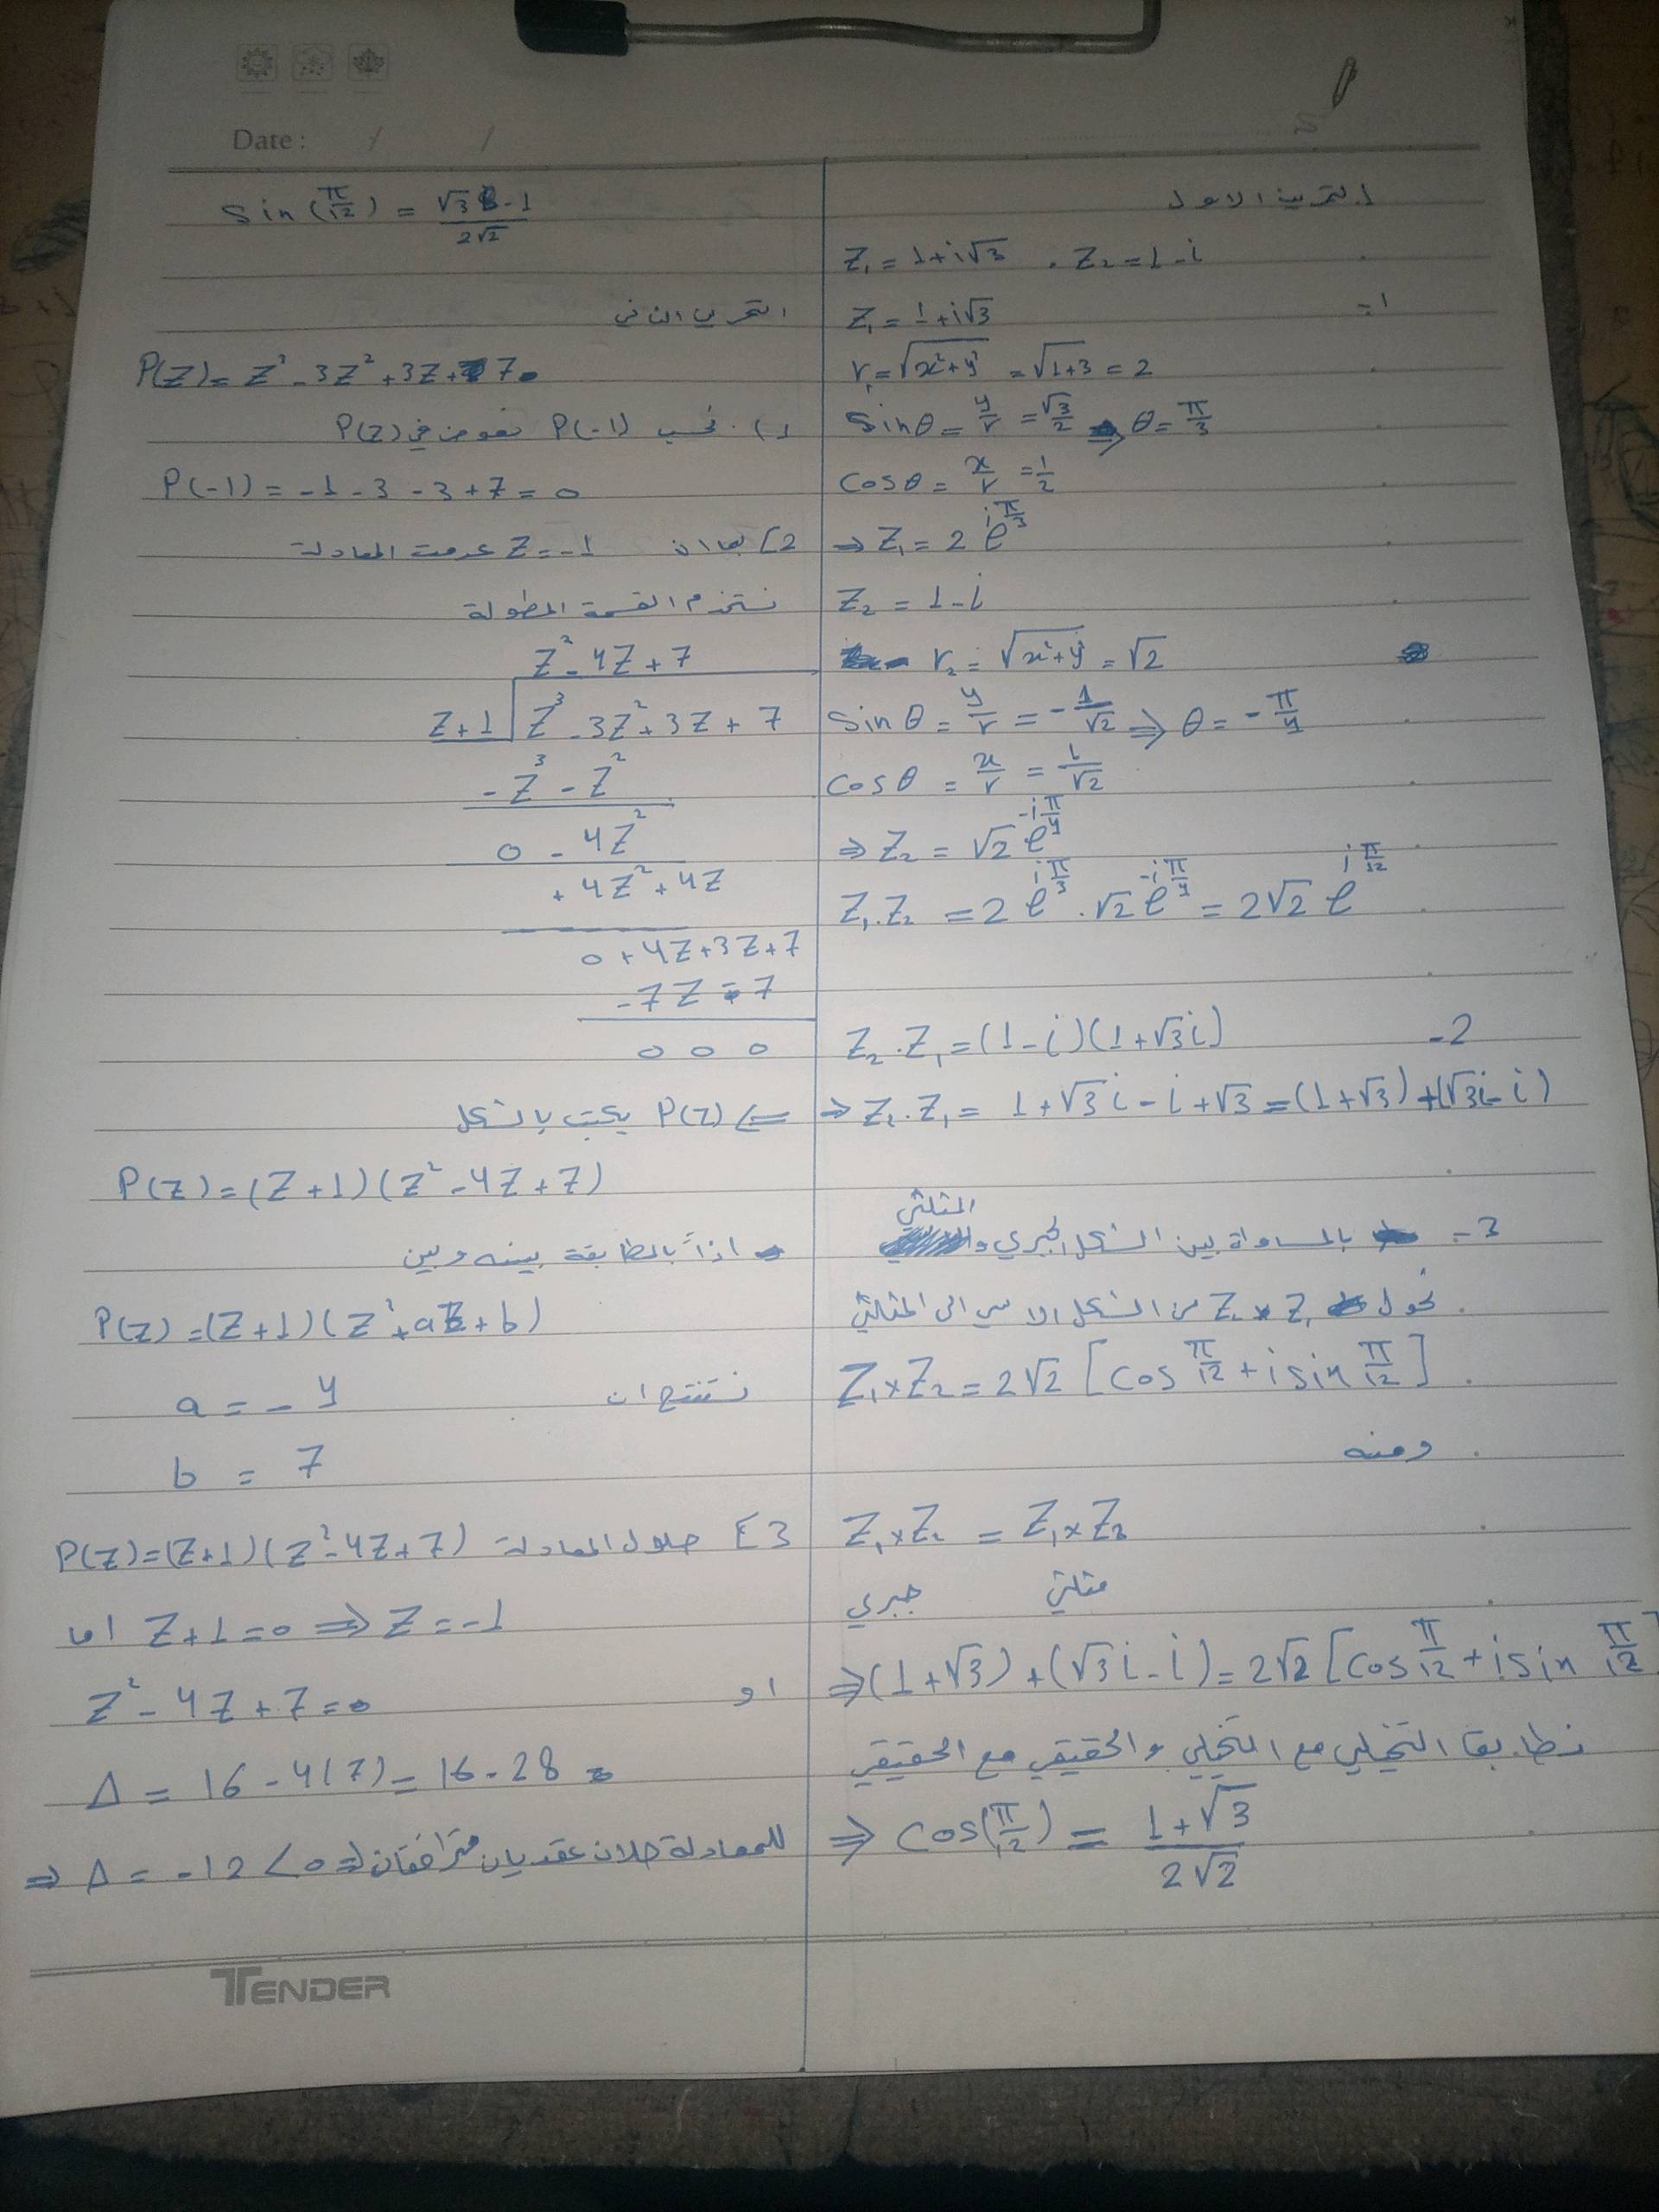 Date: / /
التمرين الاول
Z₁ = 1+i√3 . Z₂ = 1-i
1- Z₁ = 1+i√3
r₁ = √x²+y² = √1+3 = 2
sinθ = y/r = √3/2 ⇒ θ = π/3
cosθ = x/r = 1/2
⇒ Z₁ = 2 e^(iπ/3)
Z₂ = 1-i
r₂ = √x²+y² = √2
sinθ = y/r = -1/√2 ⇒ θ = -π/4
cosθ = x/r = 1/√2
⇒ Z₂ = √2 e^(-iπ/4)
Z₁.Z₂ = 2 e^(iπ/3) . √2 e^(-iπ/4) = 2√2 e^(iπ/12)
2- Z₂.Z₁ = (1-i)(1+√3i)
⇒ Z₂.Z₁ = 1+√3i-i+√3 = (1+√3)+(√3i-i)
3- بالمساواة بين الشكل الجبري والمثلثي
نحول Z₁ × Z₂ من الشكل الاسي الى المثلثي
Z₁×Z₂ = 2√2 [cos π/12 + i sin π/12]
ومنه
Z₁×Z₂ = Z₁×Z₂
جبري مثلثي
⇒ (1+√3)+(√3i-i) = 2√2 [cos π/12 + i sin π/12
نطابق التخيلي مع التخيلي والحقيقي مع الحقيقي
⇒ cos(π/12) = 1+√3/2√2
sin(π/12) = √3-1/2√2
التمرين الثاني
P(Z) = Z³-3Z²+3Z+7
1). نحسب P(-1) نعوض في P(Z)
P(-1) = -1-3-3+7 = 0
2) بما ان Z=-1 عدمت المعادلة
نستخدم القسمة المطولة
Z²-4Z+7
Z+1 Z³-3Z²+3Z+7
-Z³-Z²
0-4Z²
+4Z²+4Z
0+4Z+3Z+7
-7Z-7
0 0 0
⇐ P(Z) يكتب بالشكل
P(Z) = (Z+1)(Z²-4Z+7)
اذاً بالمطابقة بينه وبين
P(Z) = (Z+1)(Z²+aZ+b)
نستنتج ان a = -4
b = 7
3) حلول المعادلة P(Z) = (Z+1)(Z²-4Z+7)
اما Z+1=0 ⇒ Z=-1
او Z²-4Z+7=0
Δ = 16-4(7) = 16-28
⇒ Δ = -12 < 0 ⇒ للمعادلة حلان عقديان مترافقان
TENDER